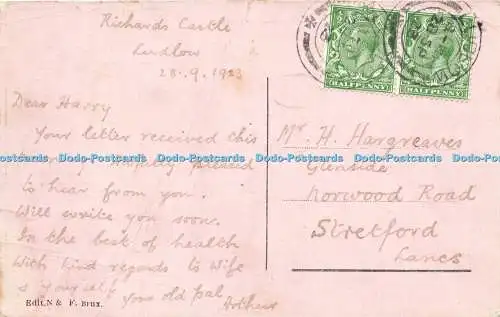 Richards Castle
Ludlow
28.9.1923
Dear Harry
Your letter received this
pleased
to hear from you.
Will write you soon.
In the best of health
With kind regards to Wife
& yourself
Your old pal
Arthur
Edit. N & F. Brux.
HALFPENNY
HALFPENNY
Mr. H. Hargreaves
Glenside
Norwood Road
Stretford
Lancs
Dodo-Postcards Dodo-Postcards Dodo-Postcards Dodo-Postcards